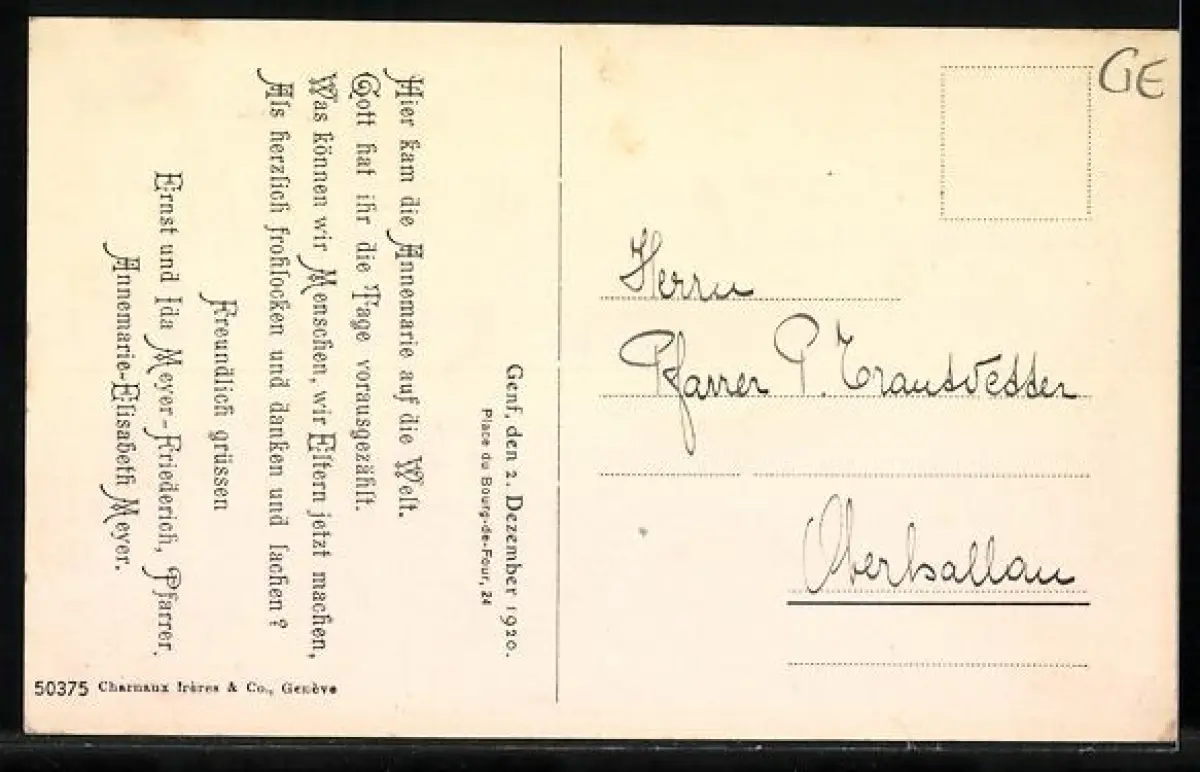 Genf, den 2. Dezember 1920.
Place du Bourg-de-Four, 24
Hier kam die Annemarie auf die Welt.
Gott hat ihr die Tage vorausgezählt.
Was können wir Menschen, wir Eltern jetzt machen,
Als herzlich frohlocken und danken und lachen?
Freundlich grüssen
Ernst und Ida Meyer-Friederich, Pfarrer.
Annemarie-Elisabeth Meyer.
50375 Charnaux frères & Co., Genève
GE
Herrn
Pfarrer P. Trautvetter
Oberhallau